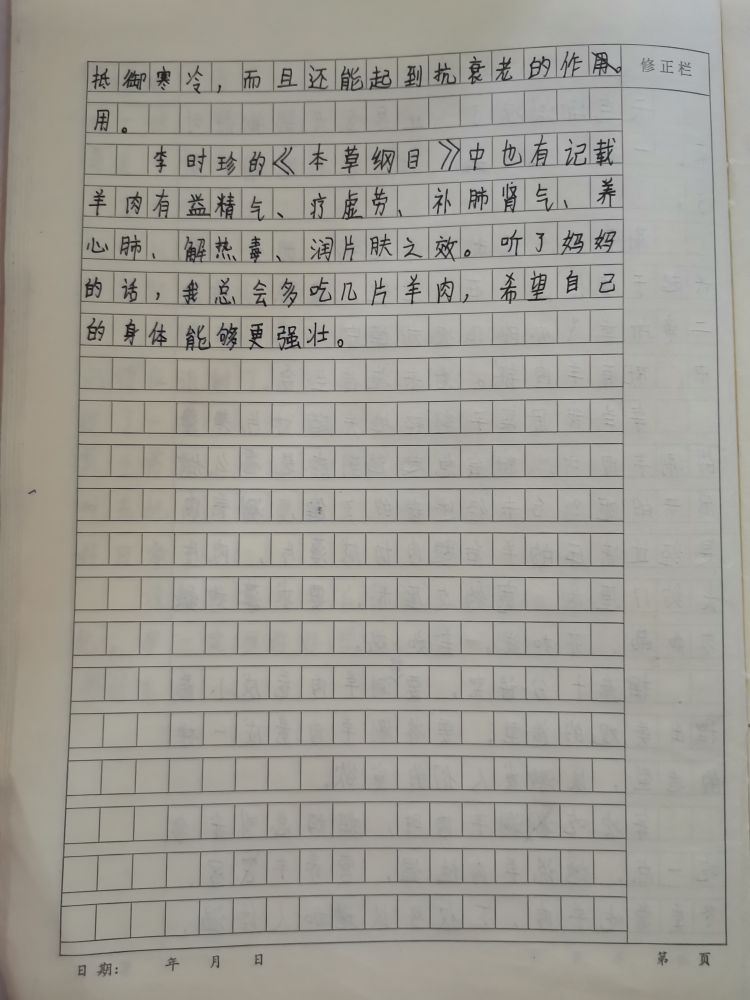 抵御寒冷，而且还能起到抗衰老的作用。
修正栏
用。
李时珍的《本草纲目》中也有记载
羊肉有益精气、疗虚劳、补肺肾气、养
心肺、解热毒、润片肤之效。听了妈妈
的话，我总会多吃几片羊肉，希望自己
的身体能够更强壮。
日期： 年 月 日
第 页